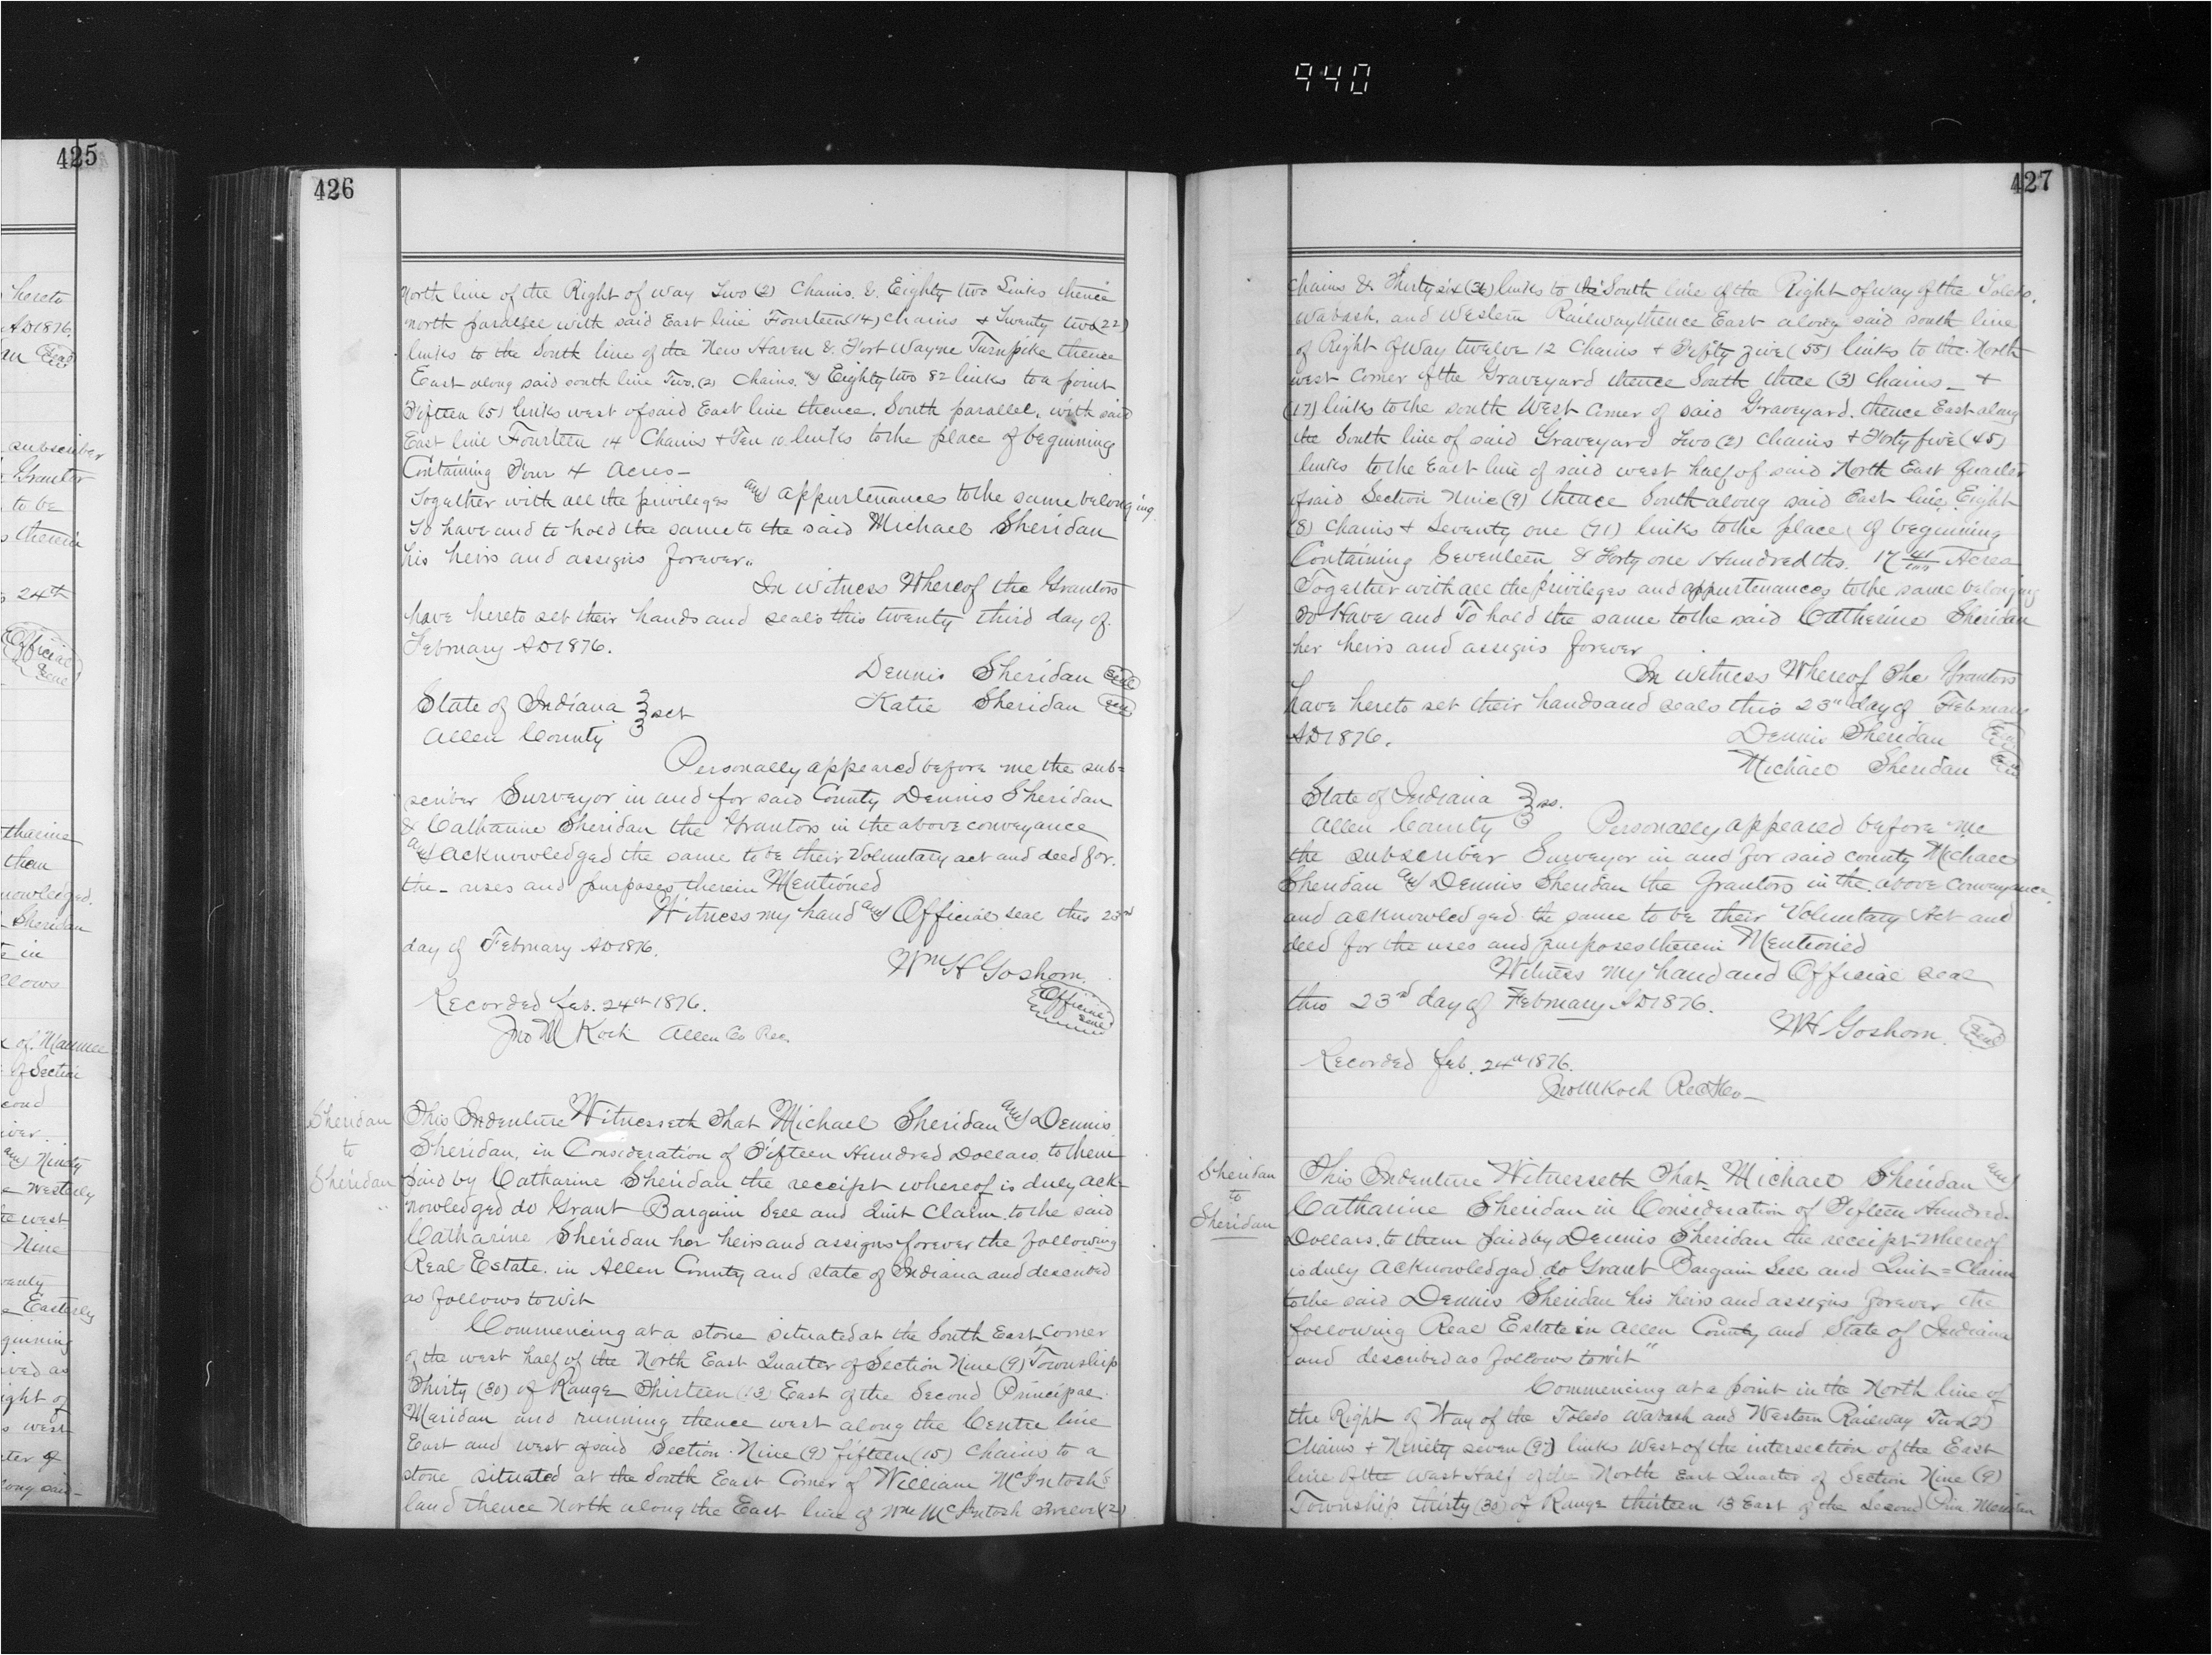 940
425
hereto
AD1876
an Seal
subscriber
Grantor
to be
therein
24th
Official
Seal
tharine
than
nowledged.
Sheridan
in
llows
of Maumee
of Section
cond
iver
and Ninety
Westerly
west
Nine
Easterly
ginning
ved as
ight of
west
ter of
long said
426
North line of the Right of Way Two (2) Chains & Eighty two Links thence
north parallel with said East line Fourteen (14) chains & Twenty two (22)
links to the South line of the New Haven & Fort Wayne Turnpike thence
East along said south line Two (2) Chains and Eighty two 82 links to a point
Fifteen (5) links west of said East line thence South parallel with said
East line Fourteen 14 Chains & Ten 10 links to the place of beginning
Containing Four 4 Acres—
Together with all the privileges and appurtenances to the same belonging
To have and to hold the same to the said Michael Sheridan
his heirs and assigns forever..
In Witness Whereof the Grantors
have hereto set their hands and seals this twenty third day of
February AD1876.
Dennis Sheridan Seal
Katie Sheridan Seal
State of Indiana } sct
Allen County
Personally appeared before me the sub=
scriber Surveyor in and for said County Dennis Sheridan
& Catharine Sheridan the Grantors in the above conveyance
and acknowledged the same to be their Voluntary act and deed for
the– uses and purposes therein Mentioned
Witness my hand and Official seal this 23rd
day of February AD1876.
Wm H Goshorn
Recorded Feb. 24th 1876.
Official
Seal
Jno M Koch Allen Co Rec.
Sheridan
to
Sheridan
This Indenture Witnesseth That Michael Sheridan and Dennis
Sheridan, in Consideration of Fifteen Hundred Dollars to them
paid by Catharine Sheridan the receipt whereof is duly ack–
nowledged do Grant Bargain Sell and Quit Claim to the said
Catharine Sheridan her heirs and assigns forever the following
Real Estate in Allen County and state of Indiana and described
as follows to wit
Commencing at a stone situated at the South East corner
of the west half of the North East Quarter of Section Nine (9) Township
Thirty (30) of Range Thirteen (13) East of the Second Principal
Maridan and running thence west along the Centre line
East and west of said Section Nine (9) fifteen (15) Chains to a
stone situated at the South East Corner of William McIntosh's
land thence North along the East line of Wm McIntosh Twelve (12)
427
Chains & Thirty six (36) links to the South line of the Right of way of the Toledo,
Wabash, and Western Railway thence East along said south line
of Right of Way twelve 12 Chains & Fifty five (55) links to the North
west Corner of the Graveyard thence South three (3) Chains – &
(17) links to the south West Corner of said Graveyard, thence East along
the South line of said Graveyard Two (2) Chains & Forty five (45)
links to the East line of said west half of said North East Quarter
of said Section Nine (9) thence South along said East line Eight
(8) Chains & Seventy one (71) links to the place of beginning
Containing Seventeen & Forty one Hundredths 17 41/100 Acres
Together with all the privileges and appurtenances to the same belonging
To Have and To hold the same to the said Catherine Sheridan
her heirs and assigns forever
In Witness Whereof The Grantors
have hereto set their hands and seals this 23" day of February
AD1876.
Dennis Sheridan Seal
Michael Sheridan Seal
State of Indiana } ss.
Allen County Personally appeared before me
the subscriber Surveyor in and for said county Michael
Sheridan and Dennis Sheridan the Grantors in the above conveyance
and acknowledged the same to be their Voluntary Act and
deed for the uses and purposes therein Mentioned
Witness my hand and Official seal
this 23rd day of February AD1876.
WH Goshorn Seal
Recorded Feb. 24th 1876.
Jno M Koch
Sheridan
to
Sheridan
This Indenture Witnesseth That Michael Sheridan and
Catharine Sheridan in Consideration of Fifteen Hundred
Dollars to them paid by Dennis Sheridan the receipt whereof
is duly acknowledged do Grant Bargain Sell and Quit=Claim
to the said Dennis Sheridan his heirs and assigns forever the
following Real Estate in Allen County and State of Indiana
and described as follows to wit"
Commencing at a point in the North line of
the Right of Way of the Toledo Wabash and Western Railway Two (2)
Chains & Ninety seven (97) links West of the intersection of the East
line of the West Half of the North East Quarter of Section Nine (9)
Township thirty (30) of Range thirteen 13 East of the Second Prin. Meridan